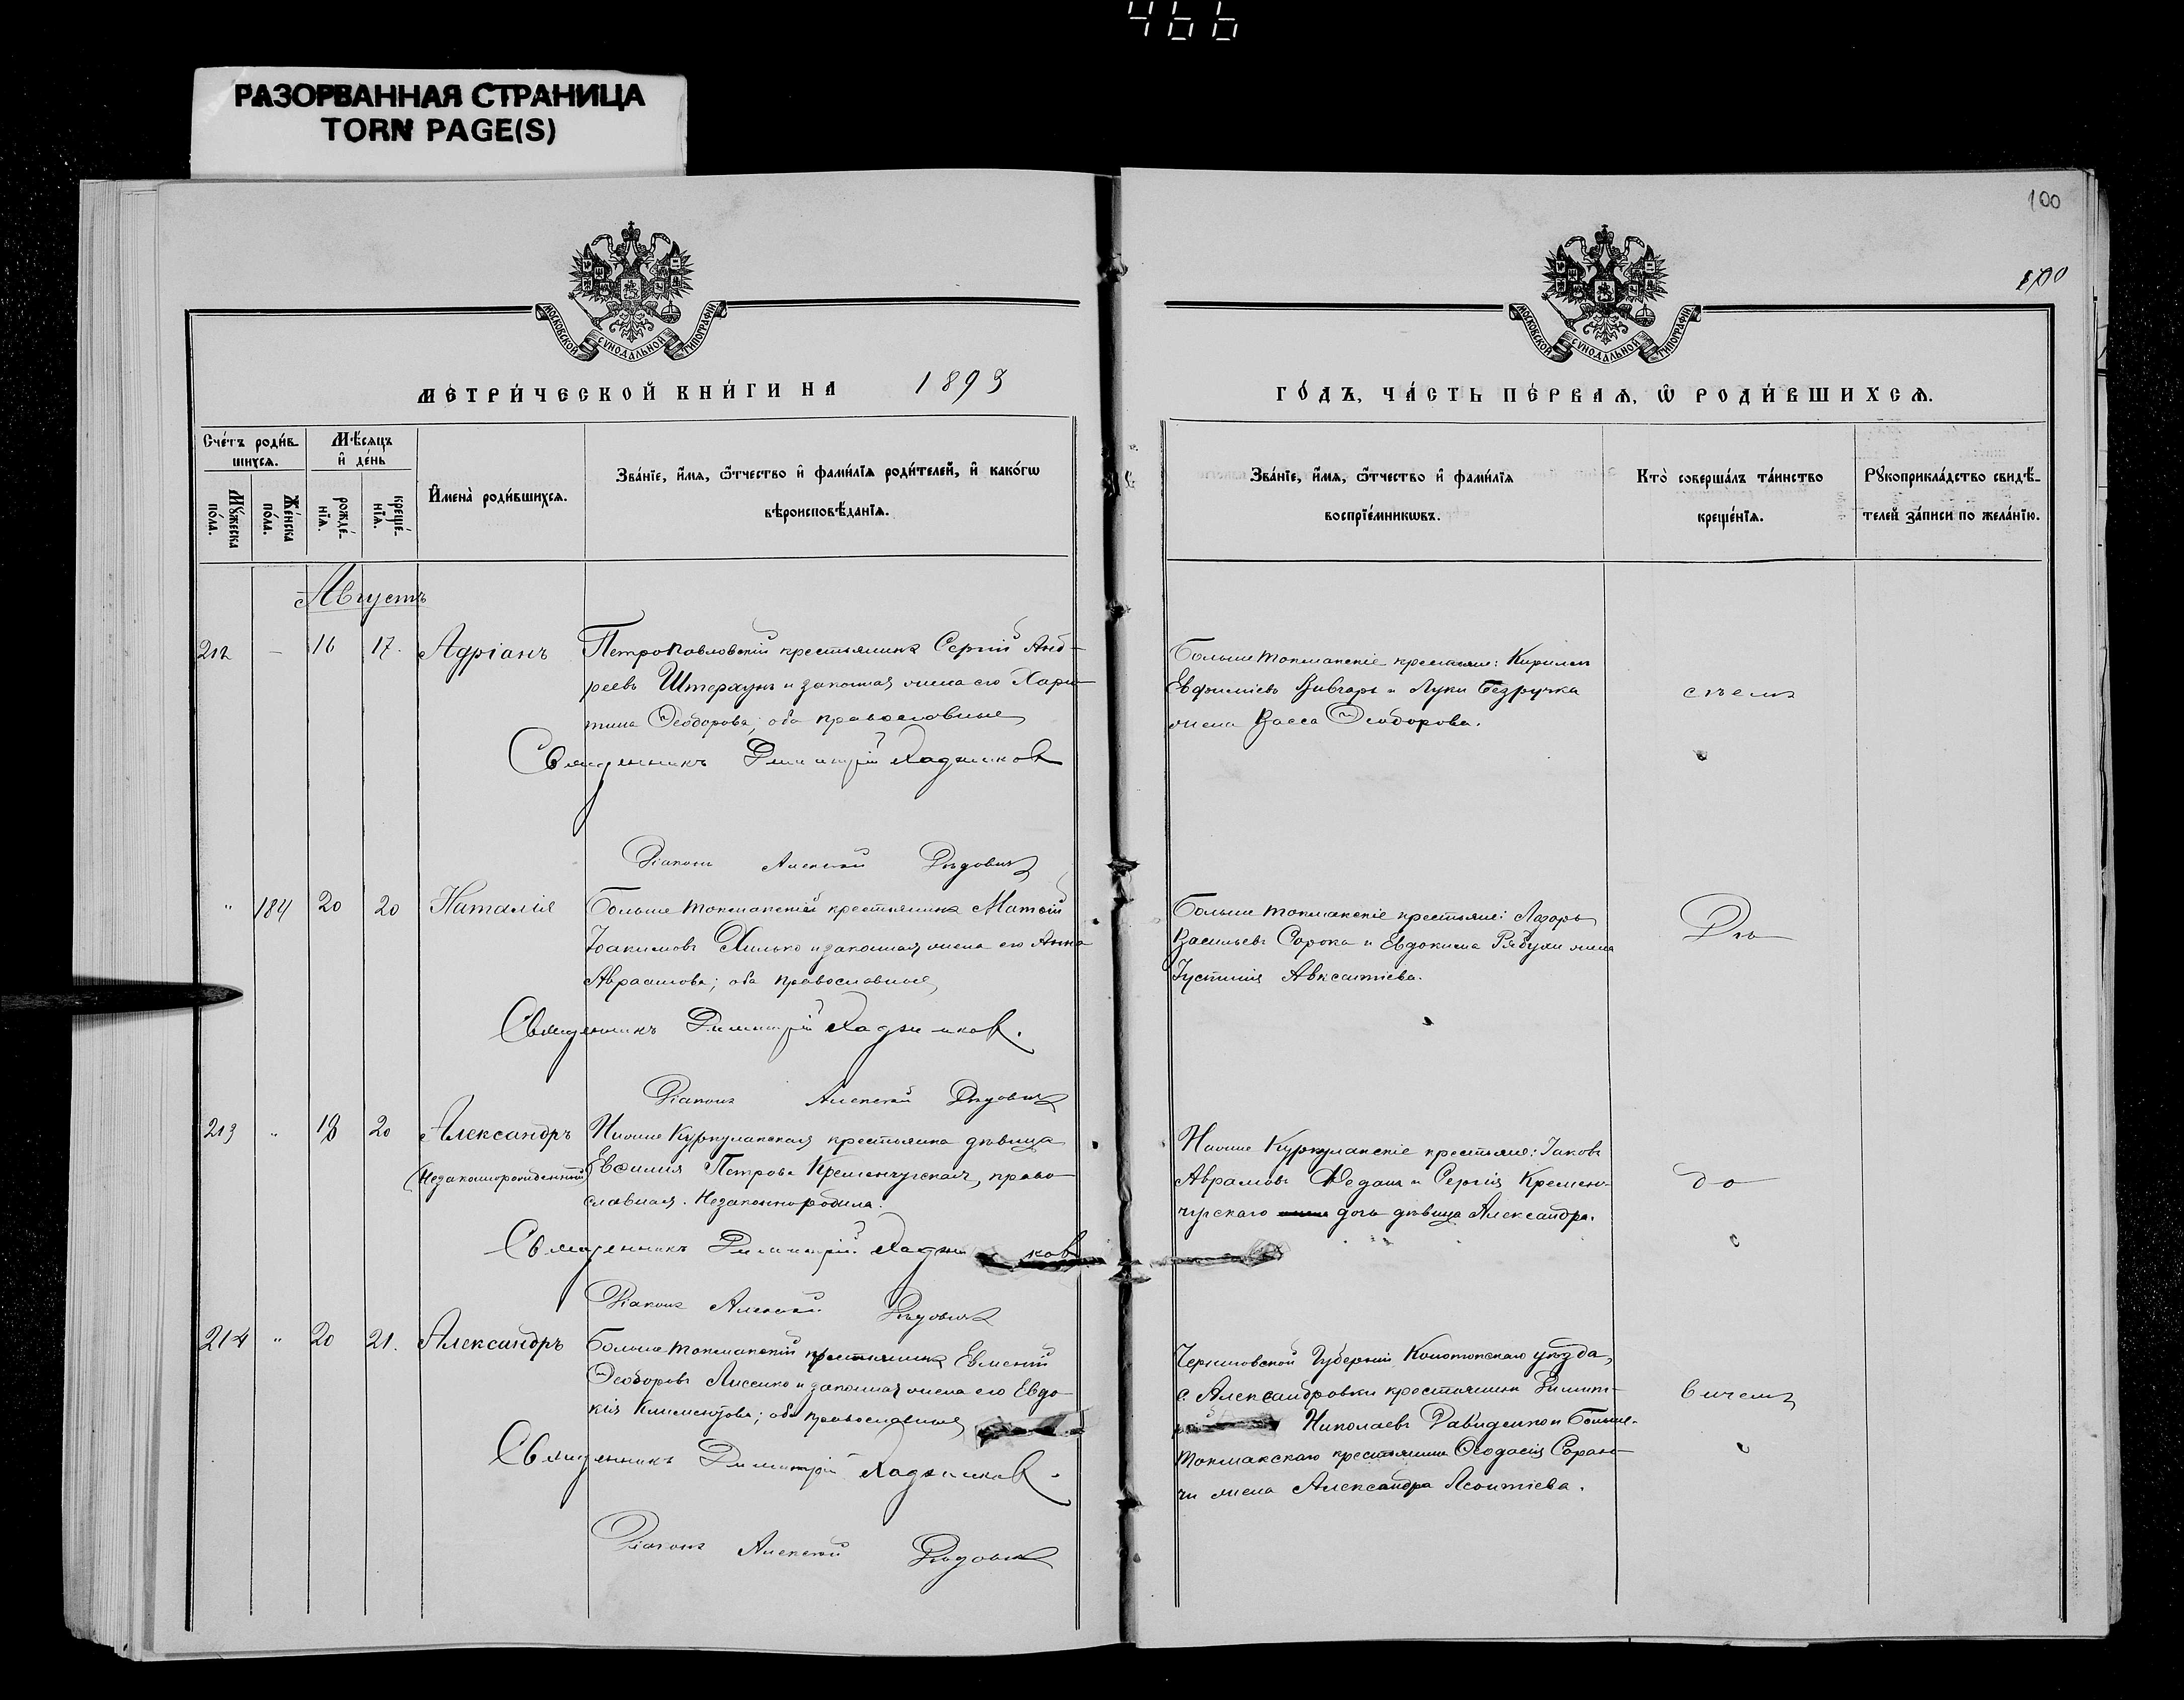 466
РАЗОРВАННАЯ СТРАНИЦА
TORN PAGE(S)
100
100
МОСКОВСКОЙ СѴНОДАЛЬНОЙ ТИПОГРАФІИ
МОСКОВСКОЙ СѴНОДАЛЬНОЙ ТИПОГРАФІИ
МЕТРИ́ЧЕСКОЙ КНИ́ГИ НА 1893
ГО́ДЪ, ЧА́СТЬ ПЕ́РВАѦ, Ѽ РОДИ́ВШИХСѦ.
Сче́тъ роди́в-
шихсѧ.
Мꙋ́жеска
по́ла.
Же́нска
по́ла.
Мѣ́сѧцъ
и҆ де́нь
рожде́-
нїѧ.
креще́-
нїѧ.
И҆мена̀ роди́вшихсѧ.
Зва́нїе, и҆́мѧ, ѻ҆́тчество и҆ фами́лїѧ роди́телей, и҆ како́гѡ
вѣроисповѣ́данїѧ.
Зва́нїе, и҆́мѧ, ѻ҆́тчество и҆ фами́лїѧ
воспрїе́мникѡвъ.
Кто̀ соверша́лъ та́инство
креще́нїѧ.
Рꙋкоприкла́дство свидѣ́-
телей за́писи по жела́нїю.
Августъ
212 — 16 17. Адріанъ Петропавловскій крестьянинъ Сергій Анд-
реевъ Штерхунъ и законная жена его Хари-
тина Ѳеодорова; оба православные
Священникъ Димитрій Хаджиновъ
Діаконъ Алексій Дѣдовичъ
Больше Токмакскіе крестьяне: Кирилъ
Евфиміевъ Вивчарь и Луки Безручка
жена Васса Ѳеодорова.
" 184 20 20 Наталія Больше Токмакскій крестьянинъ Матѳій
Іоакимовъ Хилько и законная жена его Анна
Авраамова; оба православные,
Священникъ Димитрій
Діаконъ Алексій Дѣдовичъ
Больше Токмакскіе крестьяне: Лазарь
Васильевъ Сорока и Евдокима Рябухи жена
Іустинія Авксентіева.
До
213 " 18 20 Александръ
(Незаконнорожденный)
Нижне Куркулакская крестьянка дѣвица
Евѳимія Петрова Кременчугская, право-
славная. Незаконно родила.
Священникъ Димитрій
Діаконъ Алексій Дѣдовичъ
Нижне Куркулакскіе крестьяне: Іаковъ
Аврамовъ Дедашъ и Сергія Кремен-
чугскаго дочь дѣвица Александра.
до
214 " 20 21. Александръ Больше Токмакскій крестьянинъ Евменій
Ѳеодоровъ Лисенко и законная жена его Евдо-
кія Климентова; оба православные,
Священникъ Димитрій
Діаконъ Алексій Дѣдовичъ
Черниговской Губерніи Конотопскаго уѣзда,
с. Александровки крестьянинъ
Николаевъ Давиденко и Больше-
Токмакскаго крестьянина Ѳеодосія Саран-
чи жена Александра Леонтіева.